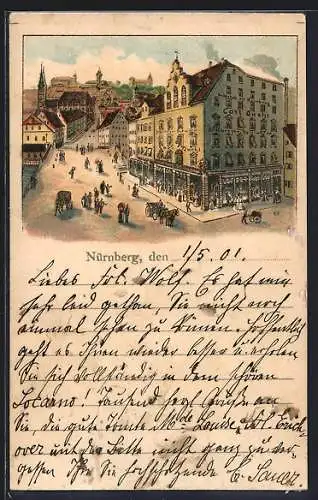 Nürnberg, den 1/5. 01.
Liebes Frl. Wolf. Es hat mir
sehr leid gethan, Sie nicht noch
einmal sehen zu können. Hoffentlich
geht es Ihnen wieder besser u. erholen
Sie sich vollständig in dem schönen
Locarno! Tausend herzl. Grüße an
Sie, die gute Tante Me Louise, Frl.
over mit der Bitte nicht ganz zu ver-
gessen Ihre Sie hochschätzende E.